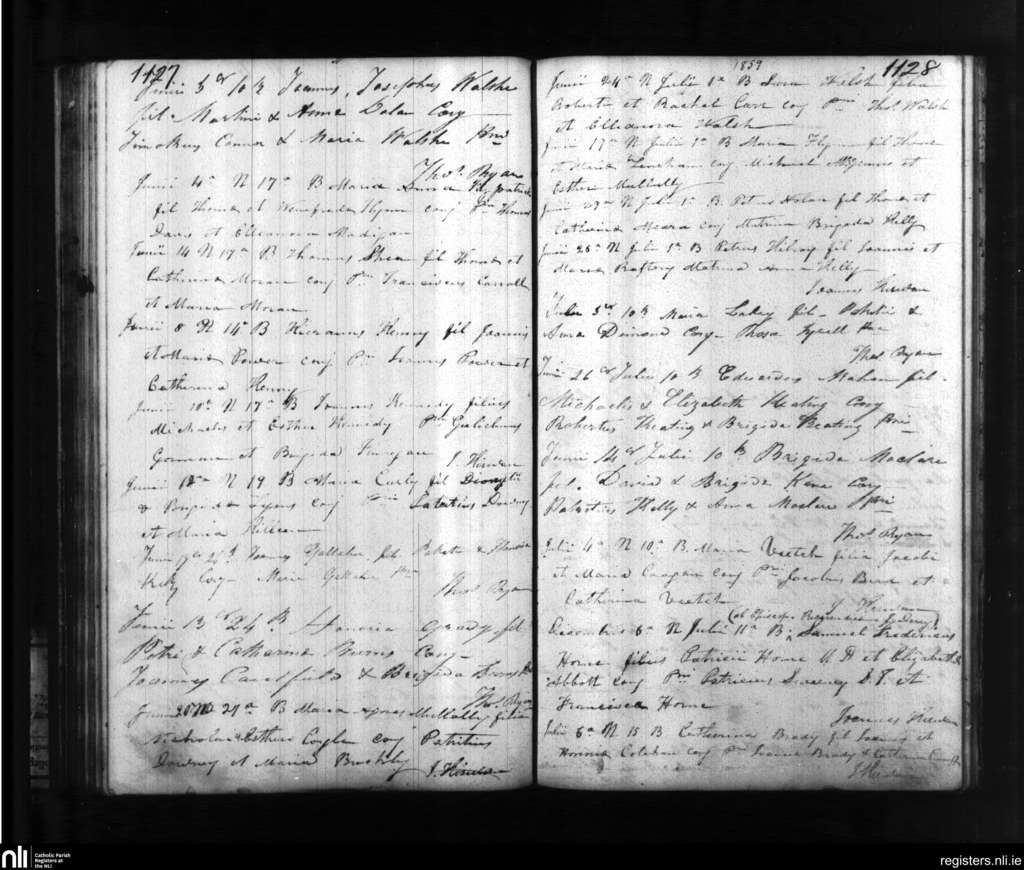 1127
Junii 5 & 10 B Joannes, Josephus Walshe
fil. Martini & Anna Dolan Conj
Timotheus Connor & Maria Walshe Pni
Thos. Ryan
Junii 4a N 17a B Maria Anna
fil Thomae et Winefreda Flynn conj Pni Thomas
Davis et Elleanora Madigan
Junii 14 N 17a B Thomas Shea fil Thomae et
Catherina Moran conj Pni Franciscus Carroll
et Maria Moran
Junii 8 N 14a B Kieranus Kenny fil Joannis
et Maria Power conj Pni Joannes Power et
Catherina Kenny
Junii 10a N 17a B Joannes Kennedy filius
Michaelis et Esther Kennedy Pni Gulielmus
Gorman et Brigida Finegan J. Kirwan
Junii N 19 B Maria Curly fil Dionysii
& Brigida Lyons conj Pni Patritius Downey
et Maria
Joannes Gallaher fil.
Kelly Conj Maria Pni
Thos Ryan
Junii 13 & 24 B Honoria Grady fil
Petri & Catharina Burns Conj
Joannes Caulfield & Brigida Burns Pni
Thos. Ryan
Junii 20 N 29a B Maria Agnes Mullally filia
Nicholai et Esther Coyle conj Patritius
Downey et Maria J. Kirwan
1859
1128
Junii 24a N Julii 1a B Welsh filia
Roberti et Rachel Carr conj Pni Thos Walsh
et Elleanora Walsh
Junii 17a N Julii 1a B Maria Flynn fil Thomae
et Maria Lenehan conj Michael McGinnis et
Esther Mullally
Junii 29a N Julii 1a B. Petrus Nolan fil Thomae et
Catherina Meara conj Matrina Brigida Kelly
Junii 25a N Julii 1a B Petrus Kilroy fil Joannis et
Maria Raftery Matrina Anna Kelly
Joannes Kirwan
Julii 3 & 10 B Maria Lakey fil. Patritii &
Anna Dimond Conj Rosa Tyrell Pna
Thos Ryan
Junii 26 & Julii 10 B Edwardus Mahon fil.
Michaelis & Elizabeth Keating Conj
Robertus Keating & Brigida Keating Pni
Junii 14 & Julii 10 B Brigida Maclare
fil. David & Brigida Kane Conj
Patritius Kelly & Anna Maclare Pni
Thos Ryan
Julii 4a N 10a B. Maria Veitch filia Jacobi
et Maria Coogan conj Pni Jacobus Burn et
Catherina Veitch
J. Kirwan
Decembris 6a N Julii 11a B. Samuel Fredericus
Horne filius Patricii Horne M D et Elizabeth
Abbott conj Pni Patricius Sweeney D. T. et
Francisca Horne
Joannes Kirwan
Julii 6a N 15 B Catherina Brady fil Joannis et
Honora Colehan conj Pni Brady & Catherina
J Kirwan
nli
Catholic Parish
Registers at
the NLI
registers.nli.ie